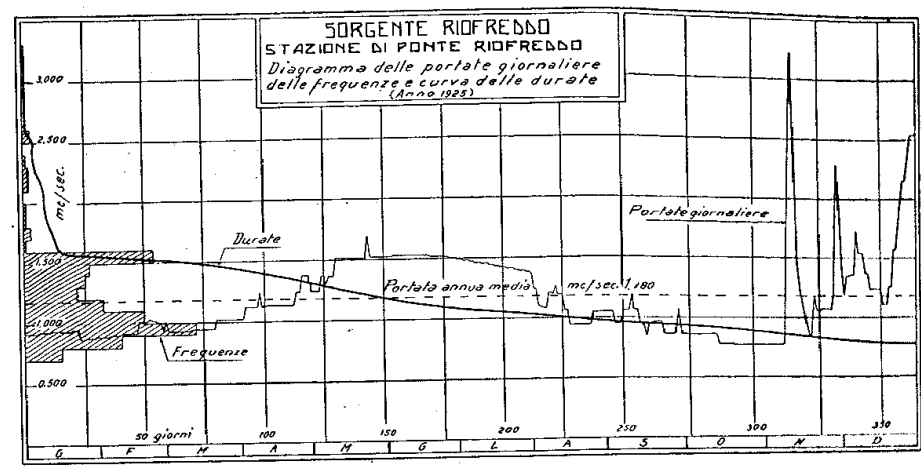 SORGENTE RIOFREDDO
STAZIONE DI PONTE RIOFREDDO
Diagramma delle portate giornaliere
delle frequenze e curva delle durate
(Anno 1925)
3,000
2,500
mc/sec.
Portate giornaliere
Durate
1,500
Portata annua media mc/sec 1,180
1,000
Frequenze
0,500
50 giorni 100 150 200 250 300 350
G F M A M G L A S O N D